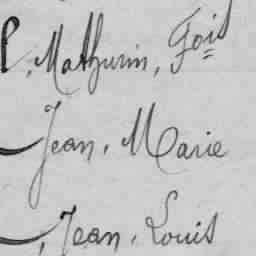 P. Mathurin, Fois
Jean, Marie
Jean, Louis